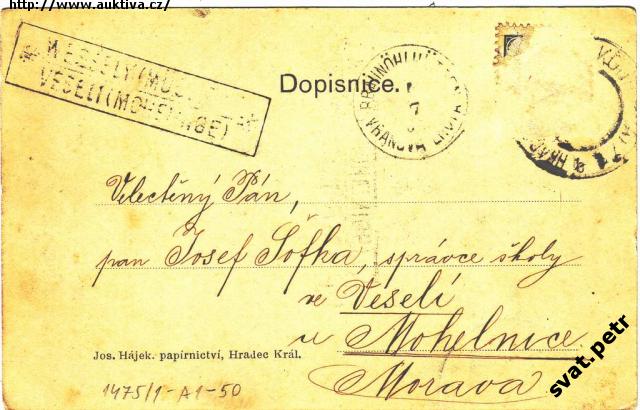 http://www.auktiva.cz/
WESSELY (MÜ
VESELÍ (MOHELNICE)
Dopisnice.
VRANOVA LHOTA
Velectěný Pán,
pan Josef Šofka, správce školy
ve Veselí
u Mohelnice.
Morava
Jos. Hájek. papírnictví, Hradec Král.
1475/1-A1-50
svat.petr